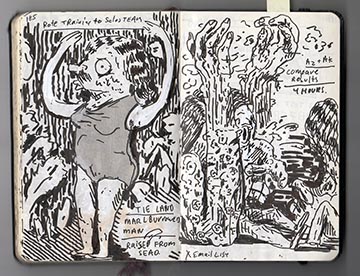 Role Training to Sales TEAM
TIE LAND
MAN
RAISED FROM
DEAD.
Az + AK
COMPARE
RESULTS
4 HOURS.
X Email List